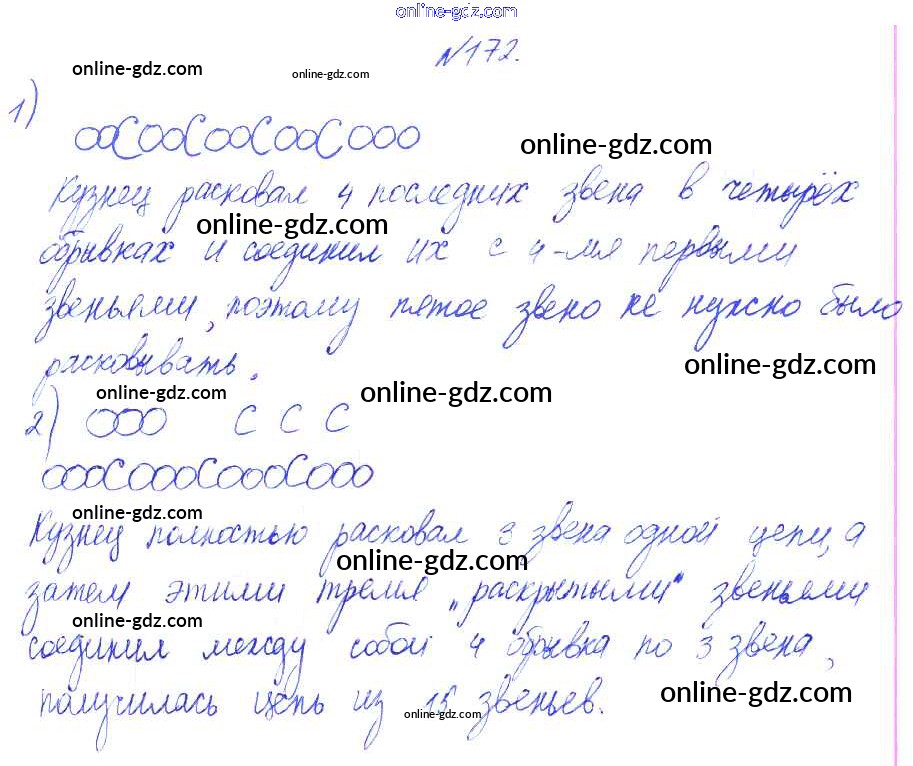 online-gdz.com
№172.
online-gdz.com online-gdz.com
1)
online-gdz.com
Кузнец расковал 4 последних звена в четырёх
online-gdz.com
обрывках и соединил их с 4-мя первыми
звеньями, поэтому пятое звено не нужно было
расковывать.
online-gdz.com
online-gdz.com online-gdz.com
2)
online-gdz.com
Кузнец полностью расковал 3 звена одной цепи, а
online-gdz.com
затем этими тремя „раскрытыми" звеньями
online-gdz.com
соединил между собой 4 обрывка по 3 звена,
получилась цепь из 15 звеньев.
online-gdz.com online-gdz.com